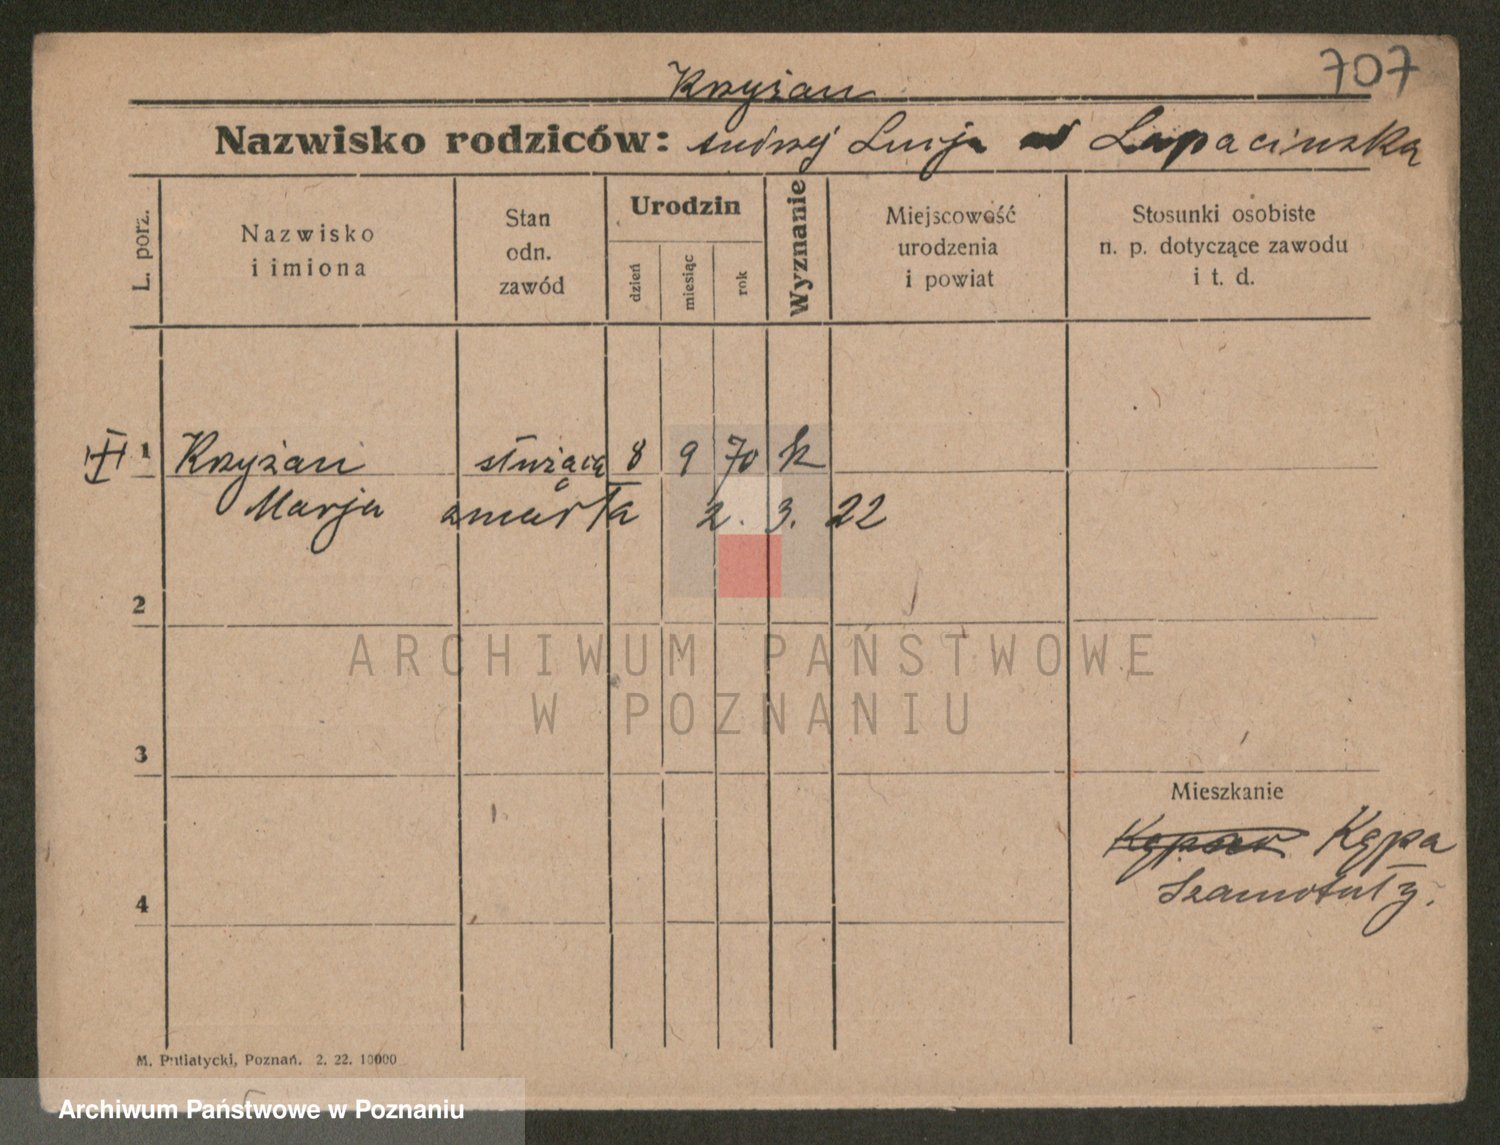 707
Krzyżan
Nazwisko rodziców: Andrzej Lucja Lapacinska
L. porz.
Nazwisko
i imiona
Stan
odn.
zawód
Urodzin
dzień
miesiąc
rok
Wyznanie
Miejscowość
urodzenia
i powiat
Stosunki osobiste
n. p. dotyczące zawodu
i t. d.
1 Krzyżan służąca 8 9 70 k
Marja zmarła 2. 3. 22
2
3
4
Mieszkanie
Kępa
Szamotuły.
ARCHIWUM PAŃSTWOWE
W POZNANIU
M. Putiatycki, Poznań. 2. 22. 10000
Archiwum Państwowe w Poznaniu